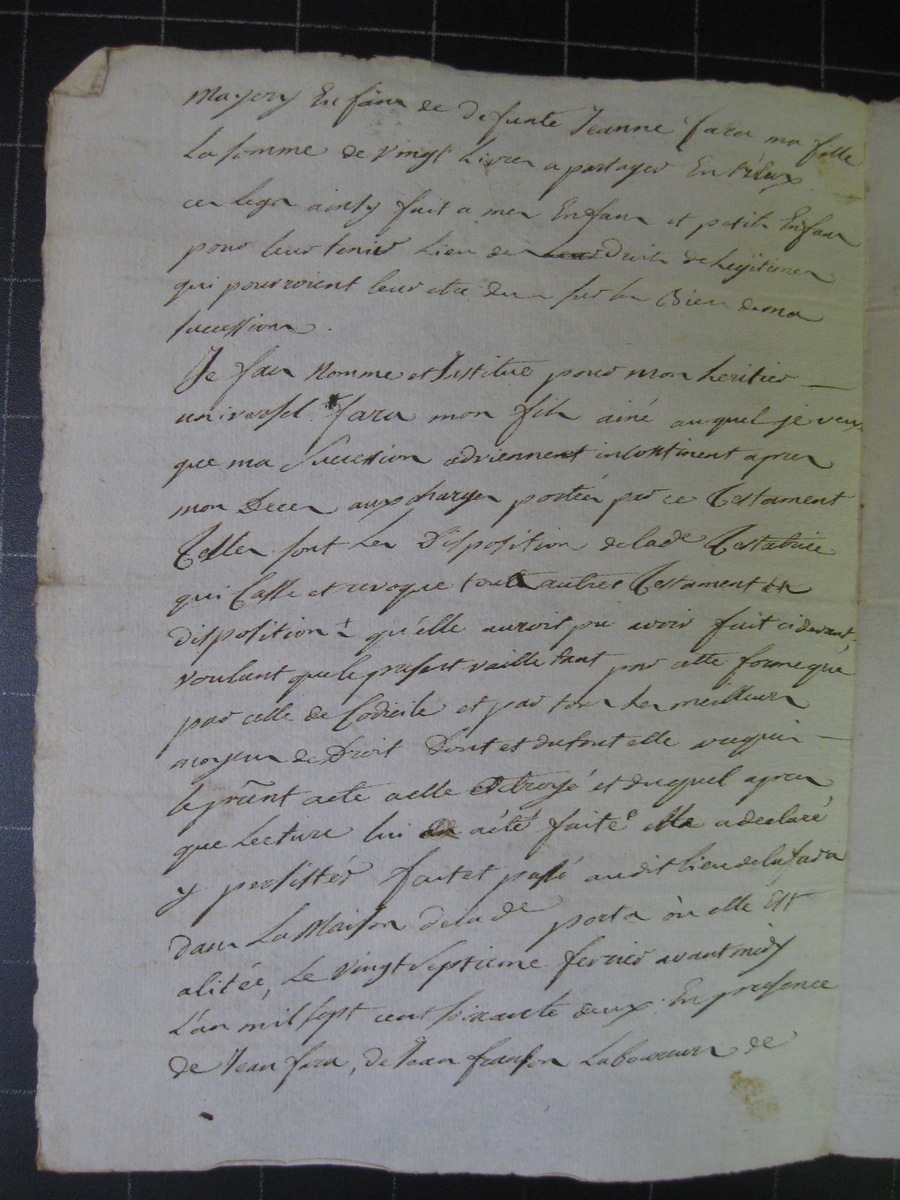 mayery Enfans de defunte Jeanne fara ma fille
La somme de vingt Livres a partager Entr'eux
ces legs ainsy fait a mes Enfans et petits Enfans
pour leur tenir Lieu des Droits de Legitimes
qui pourroient leur etre dus sur les Biens de ma
succession.
Je fais Nomme et Institue pour mon heritier
universel fara mon fils ainé auquel je veux
que ma Succession adviennent incontinent apres
mon Deces aux charges portées par ce Testament
Telles sont Les Disposition de lade Testatrice
qui Casse et revoque tout autres Testament et
disposition qu'elle auroit pu avoir fait cidevant,
voulant que le present vaille tant par cette forme que
par celle de Codicile et par tous Les meilleurs
moyens de Droit Dont et du tout elle a requis
le pñt acte a elle Octroyé et duquel apres
que Lecture lui a été faite elle a declaré
y persister fait et passé audit lieu de la fara
dans La Maison de lade porta où elle Est
alitée, Le vingt Septieme fevrier avant midy
L'an mil sept cent soixante deux En presence
de Jean fara, de Jean Laboureurs de